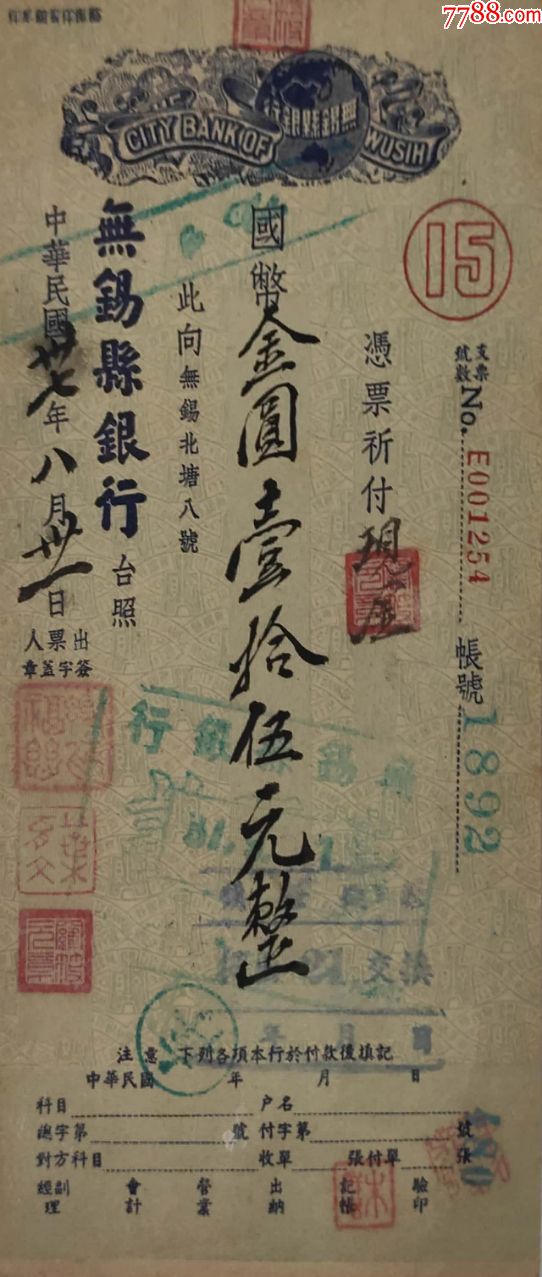 7788.com
CITY BANK OF WUSIH
無錫縣銀行
15
支票號數 No. E001254 帳號 1892
憑票祈付 現金
國幣金圓壹拾伍元整
此向無錫北塘八號
無錫縣銀行台照
中華民國卅七年八月卅一日
出票人
簽字蓋章
無錫縣銀行
交換
年 月 日
注意 下列各項本行於付款後填記
中華民國 年 月 日
科目 户名
總字第 號 付字第 號
對方科目 收單 張付單 張
經副理 會計 營業 出納 記帳 驗印